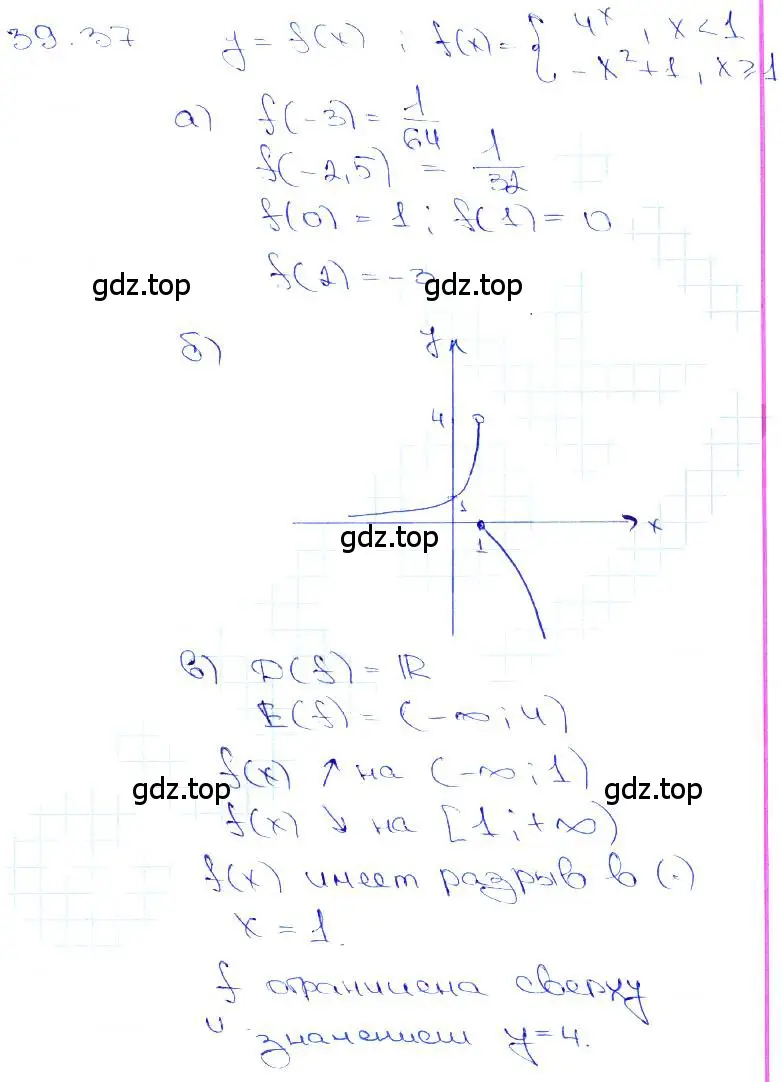 39.37 y = f(x) ; f(x) = { 4^x, x < 1
-x² + 1, x ≥ 1
а) f(-3) = 1/64
f(-2,5) = 1/32
f(0) = 1 ; f(1) = 0
f(2) = -3
gdz.top gdz.top
б) y
4
1
x
1
gdz.top
в) D(f) = ℝ
E(f) = (-∞; 4)
f(x) ↑ на (-∞; 1)
gdz.top gdz.top
f(x) ↓ на [1; +∞)
f(x) имеет разрыв в (·)
x = 1.
f ограничена сверху
значением y = 4.